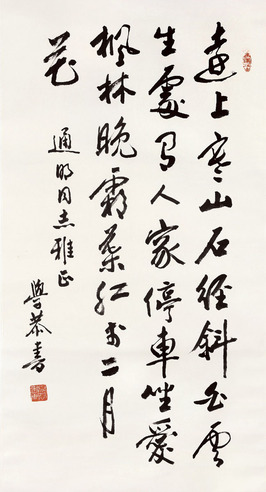 遠上寒山石徑斜白雲
生處有人家停車坐愛
楓林晚霜葉紅於二月
花
通明同志雅正
學恭書